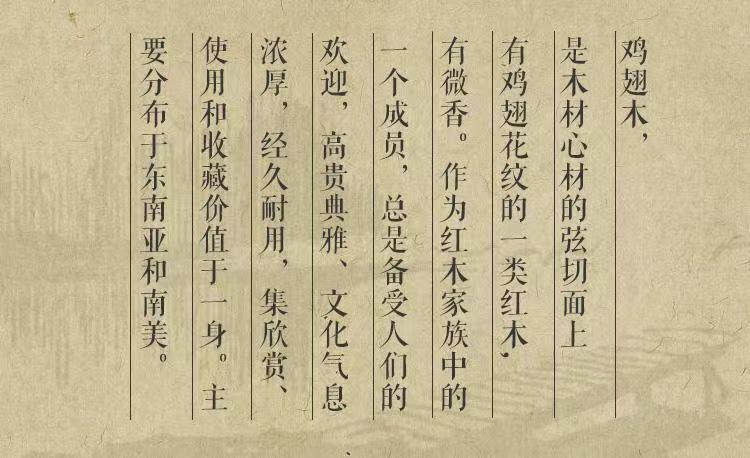 鸡翅木，
是木材心材的弦切面上
有鸡翅花纹的一类红木，
有微香。作为红木家族中的
一个成员，总是备受人们的
欢迎，高贵典雅、文化气息
浓厚，经久耐用，集欣赏、
使用和收藏价值于一身。主
要分布于东南亚和南美。